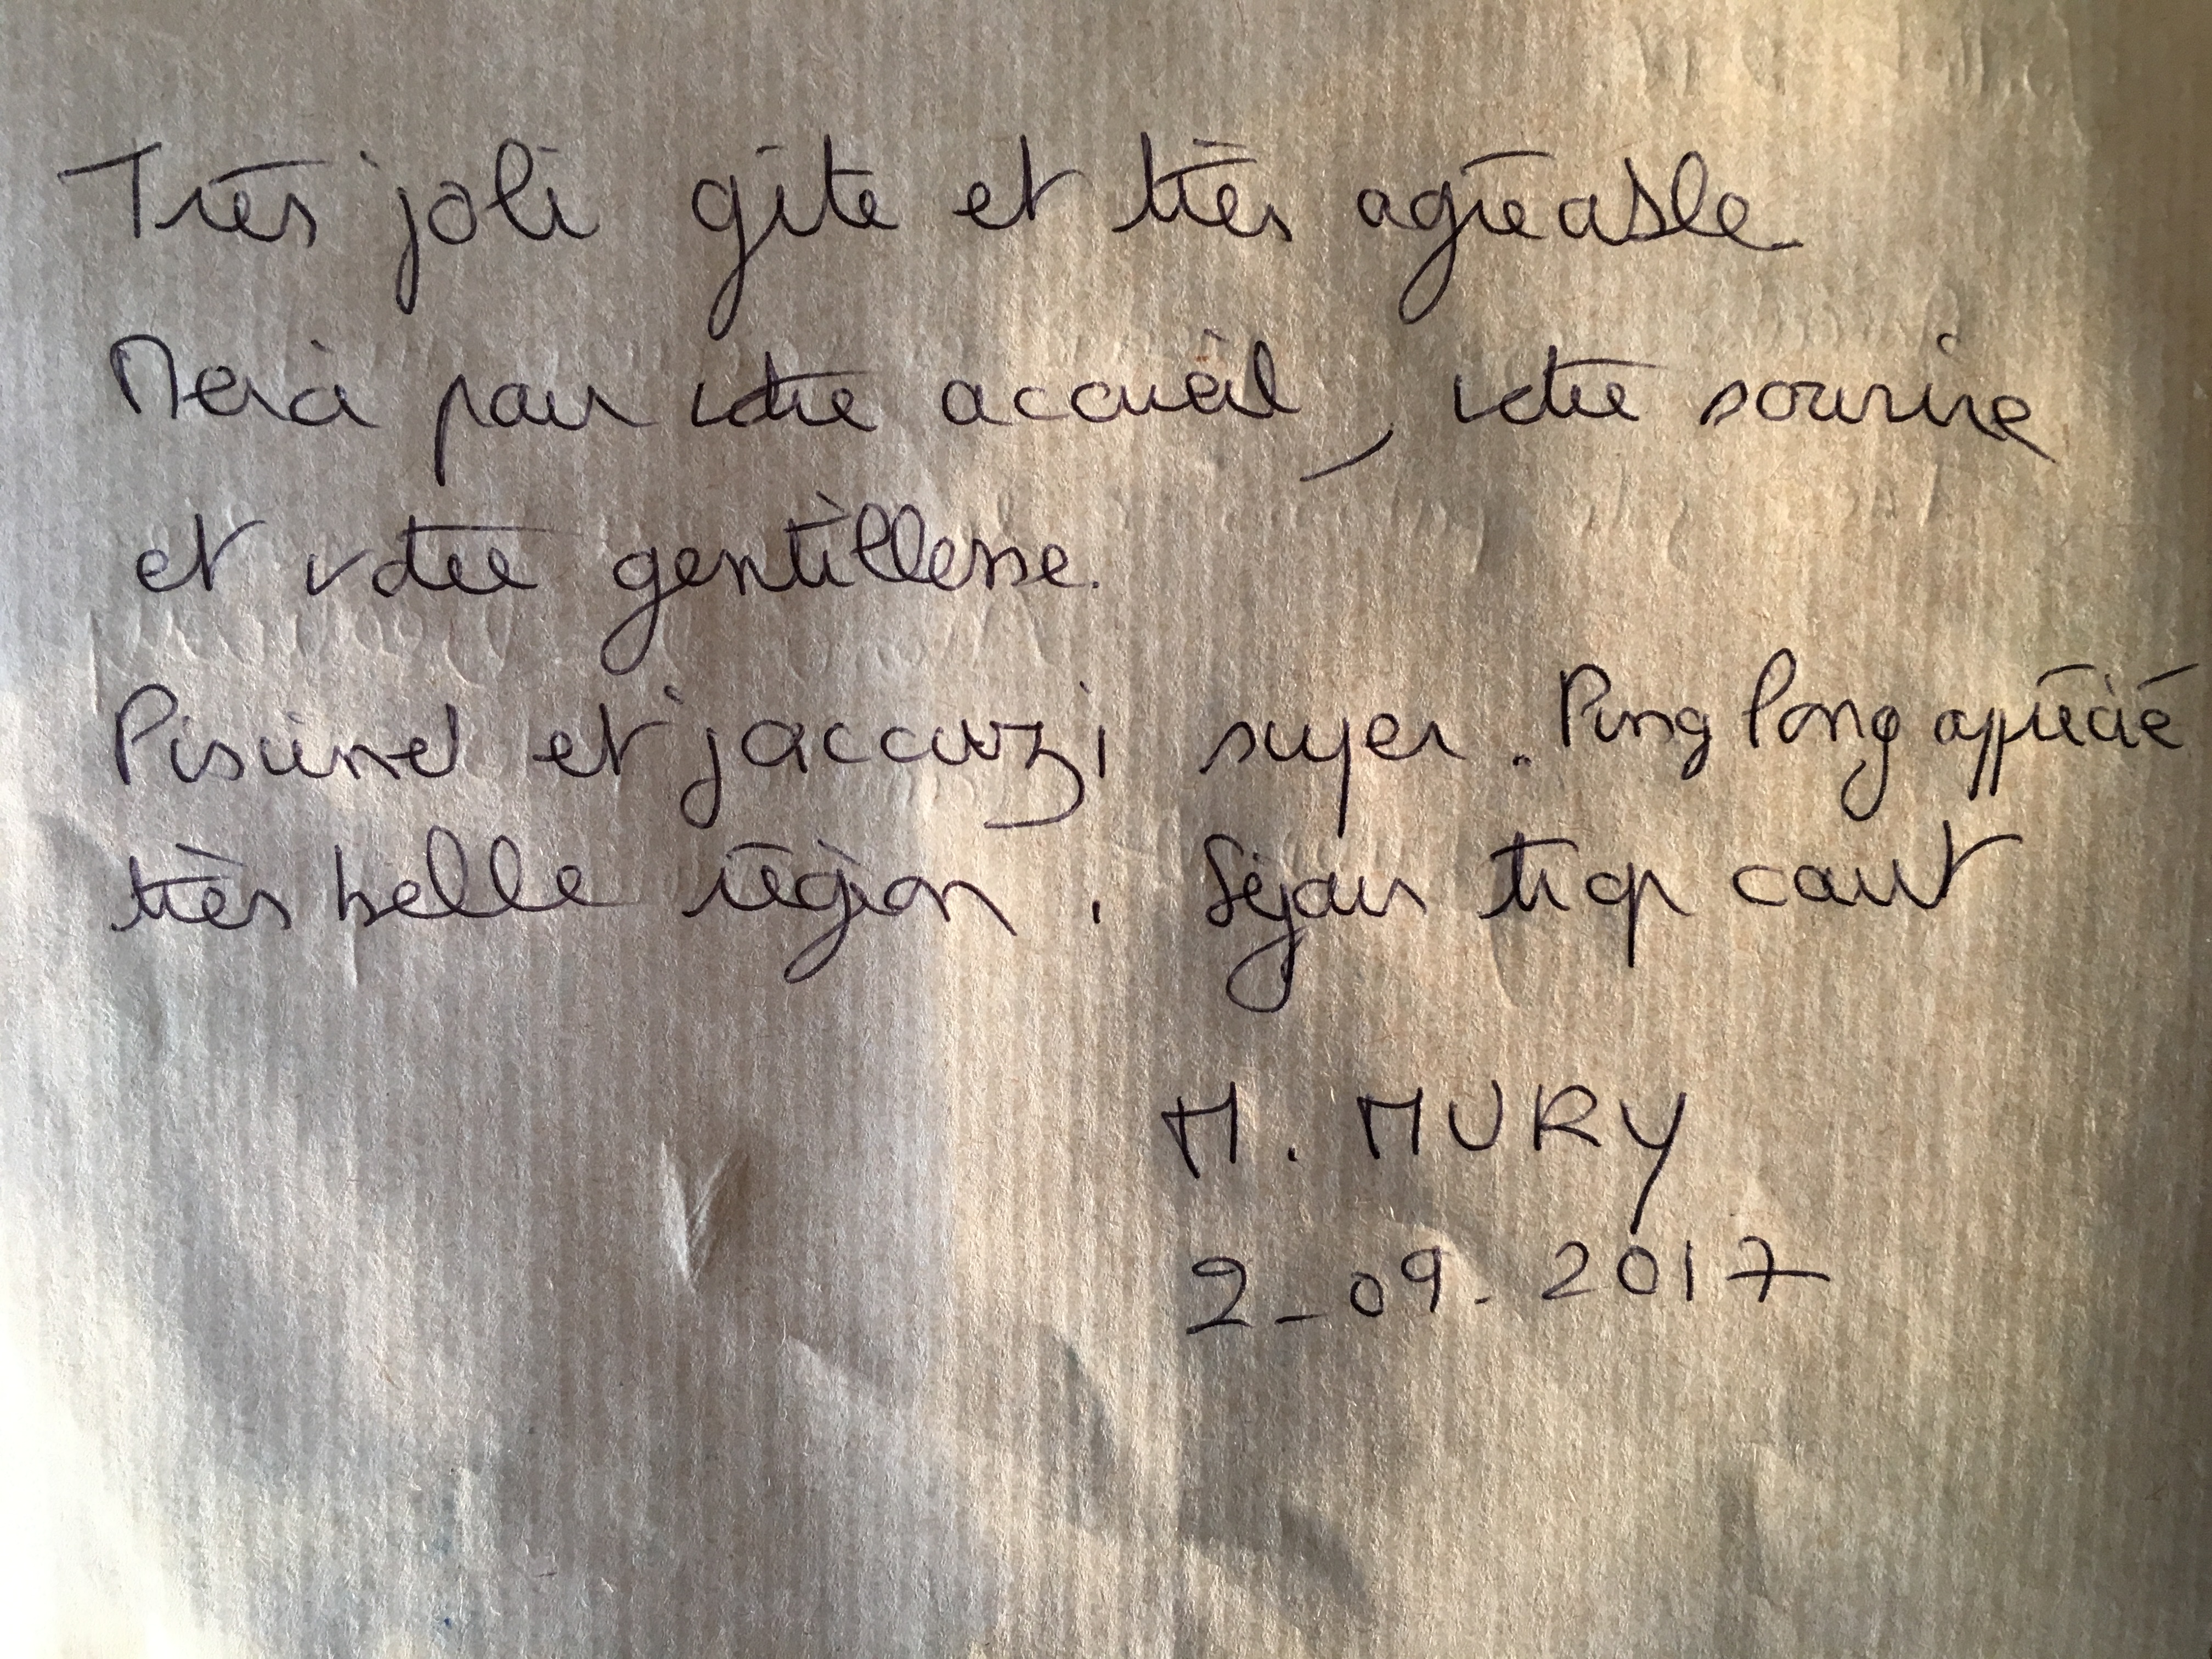 Très joli gite et très agréable
Merci pour votre accueil, votre sourire
et votre gentillesse.
Piscine et jaccuzzi super. Ping Pong apprécié
très belle région. Séjour trop court
M. MURY
2-09-2017